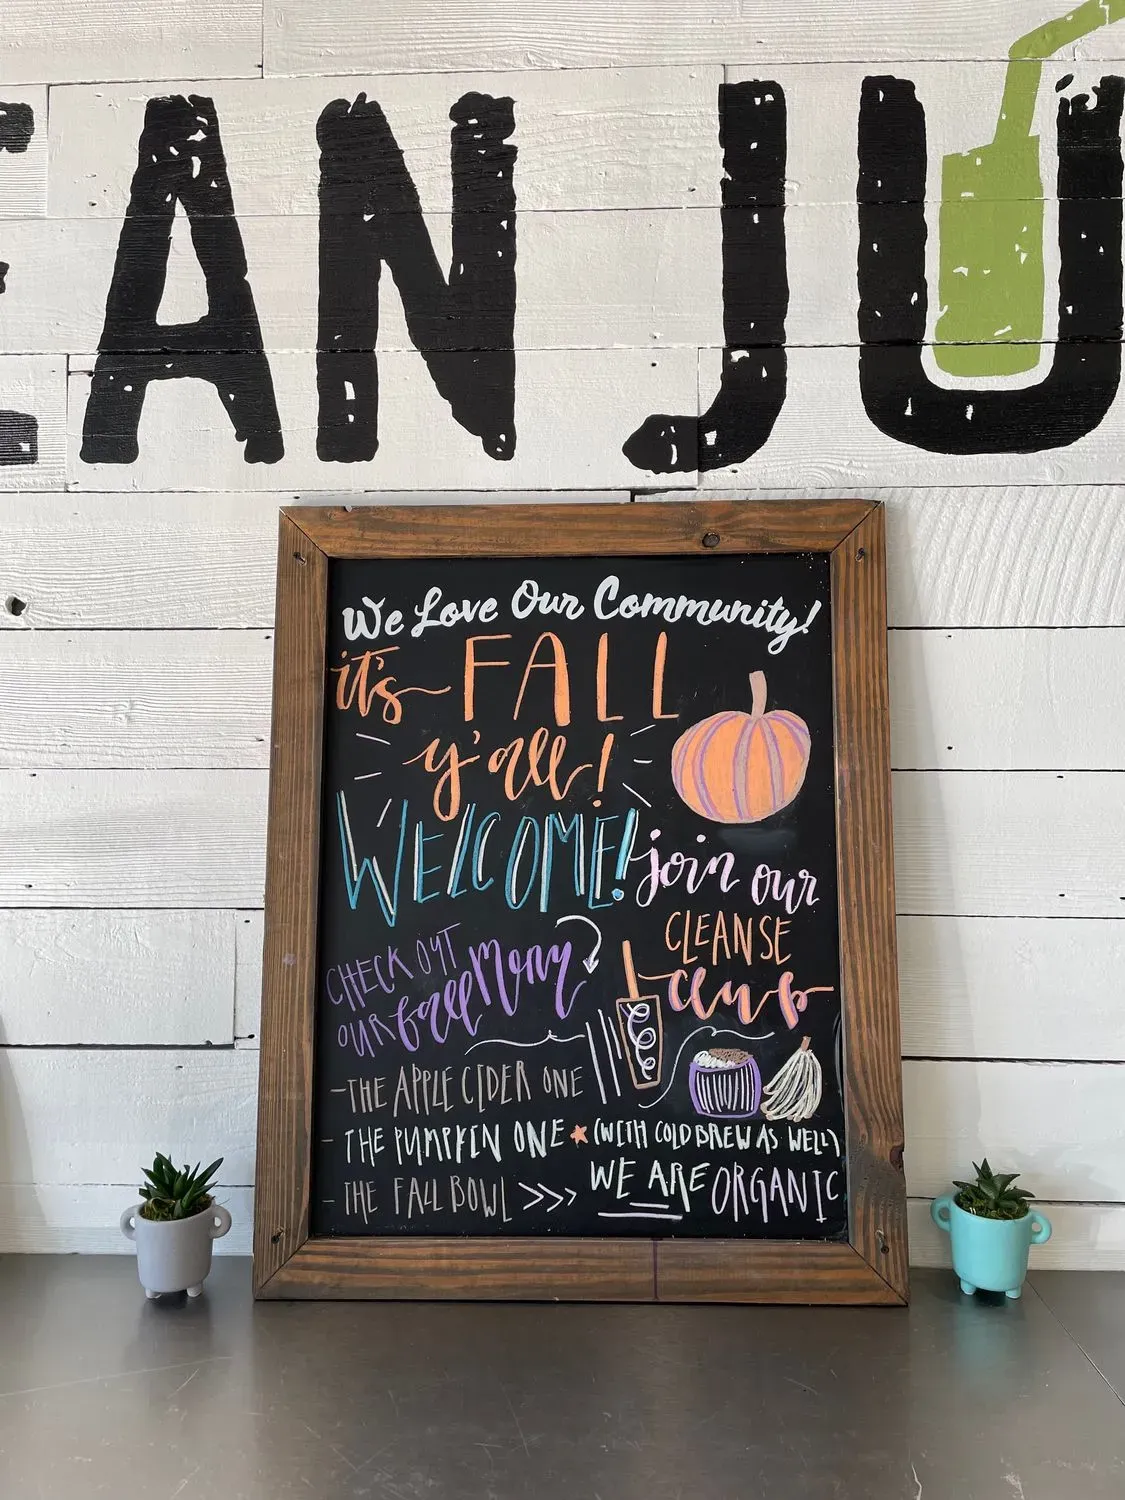 EAN JU
We Love Our Community!
it's FALL
y'all!
WELCOME!
join our
CLEANSE
club
CHECK OUT
OUR fall Menu
-THE APPLE CIDER ONE
- THE PUMPKIN ONE (WITH COLD BREW AS WELL)
- THE FALL BOWL >>>
WE ARE ORGANIC